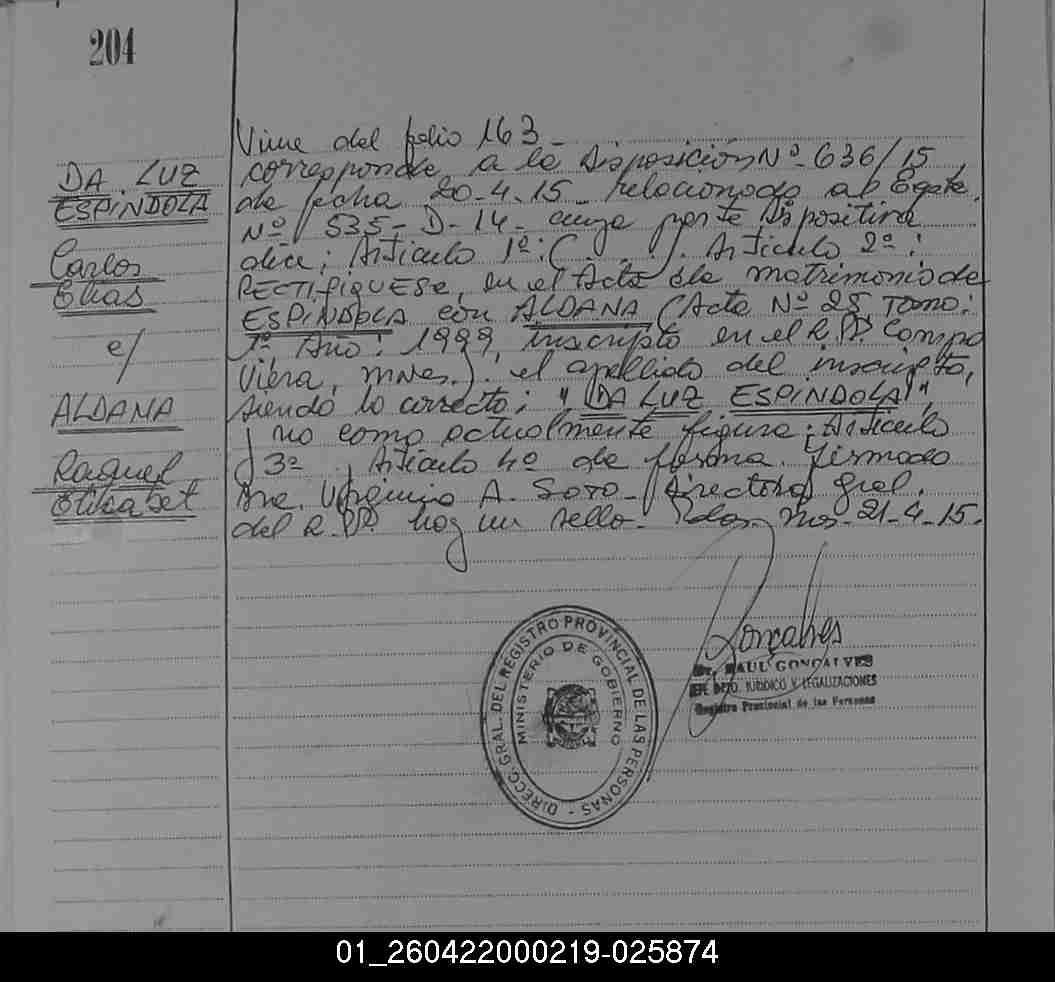 204
Viene del folio 163-
corresponde a la Disposición Nº 636/15
de fecha 20-4-15 relacionado al Expte.
Nº 535-D-14- cuya parte dispositiva
dice; Articulo 1º:( . . . ). Articulo 2º:
RECTIFIQUESE, en el Acta de matrimonio de
ESPINDOLA con ALDANA (Acta Nº 28, Tomo:
1º, Año: 1999, inscripto en el R.PP. Campo
Viera, Mnes.): el apellido del inscripto,
siendo lo correcto; "DA LUZ ESPINDOLA",
y no como actualmente figura; Articulo
3º y Articulo 4º de forma. firmado
Dra. Virginia A. Soto- Directora Gral.
del R.PP. hay un sello- Pdas. Mns. 21-4-15.
DA LUZ
ESPINDOLA
Carlos
Elias
c/
ALDANA
Raquel
Elisabet
DIRECC. GRAL. DEL REGISTRO PROVINCIAL DE LAS PERSONAS -
MINISTERIO DE GOBIERNO
Goncalves
RAUL GONCALVES
JEFE DPTO. JURIDICO Y LEGALIZACIONES
Registro Provincial de las Personas
01_260422000219-025874